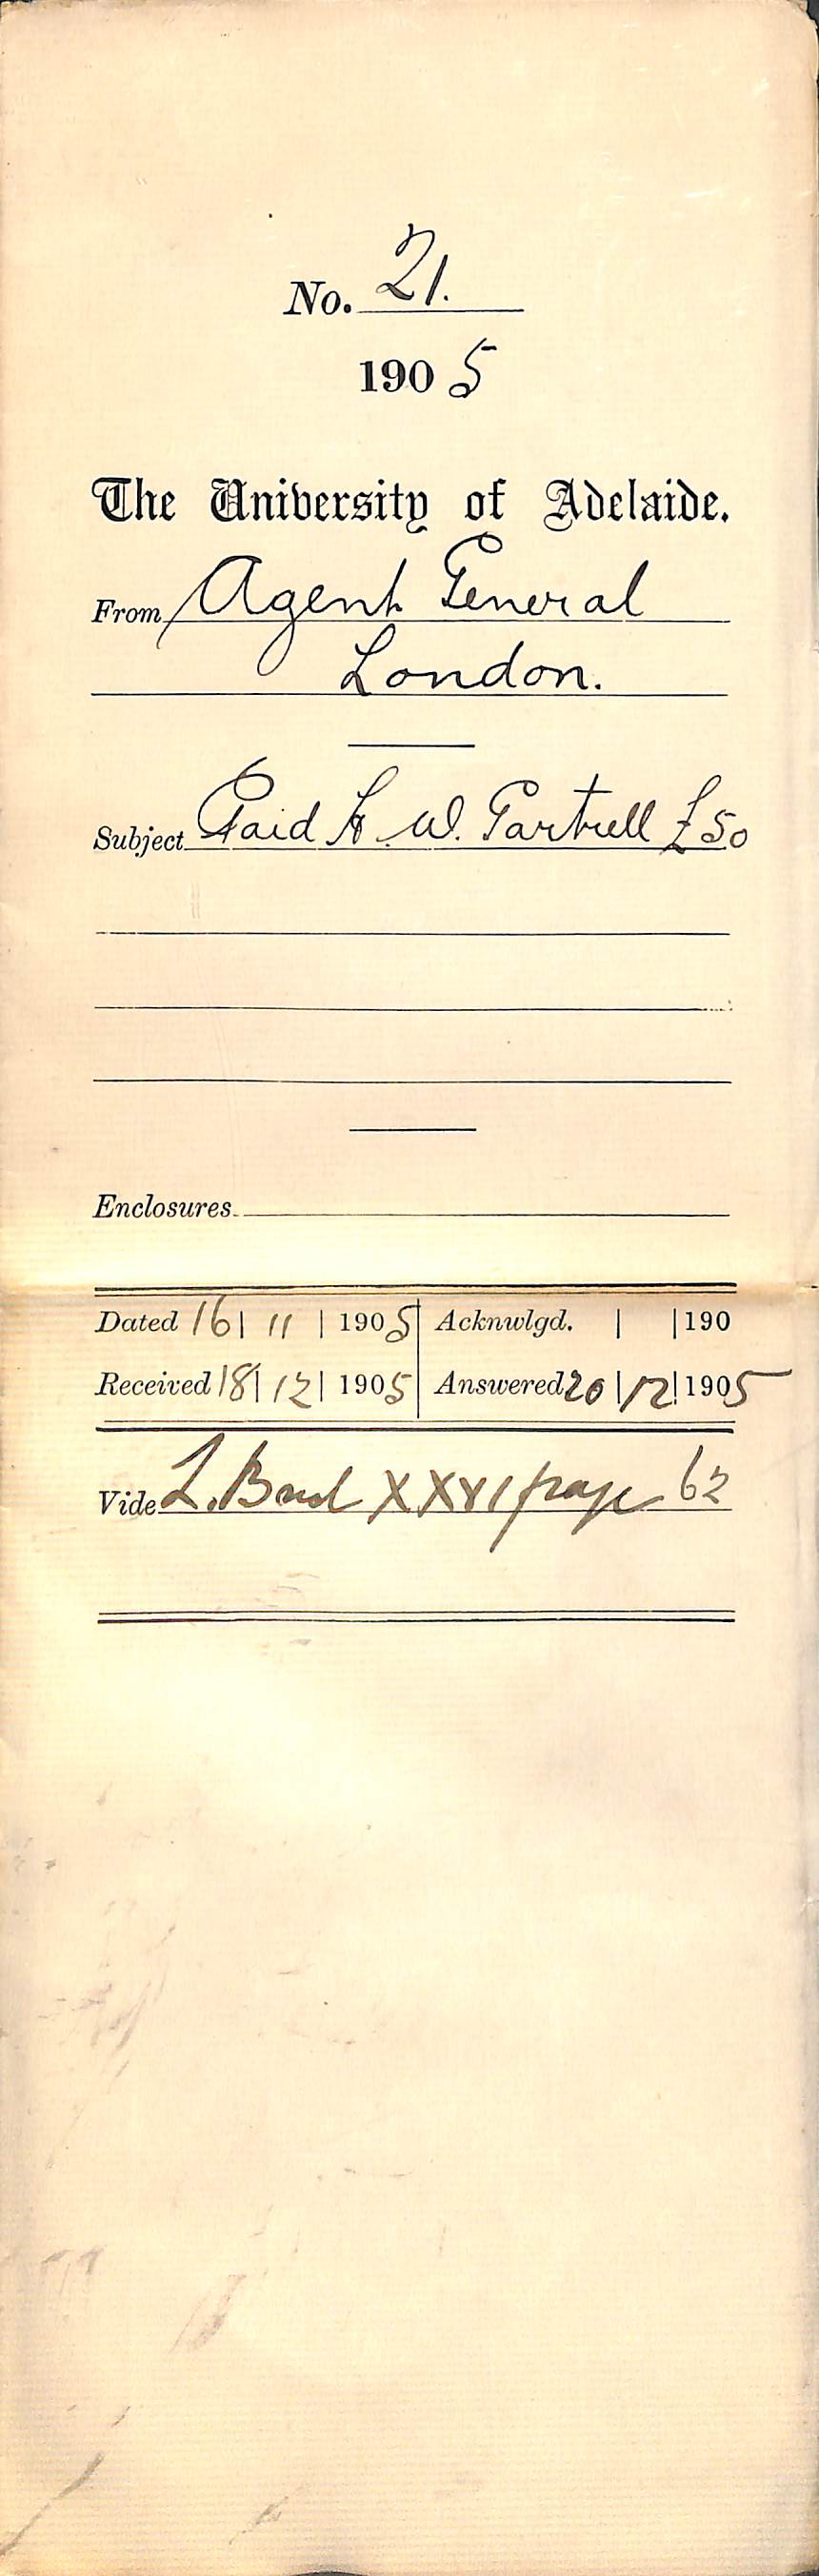 No. 21.
1905
The University of Adelaide.
From Agent General
London.
Subject Paid H. W. Gartrell £50
Enclosures
Dated 16 | 11 | 1905 Acknwlgd. | | 190
Received 18 | 12 | 1905 Answered 20 | 12 | 1905
Vide L. Book XXVI page 62